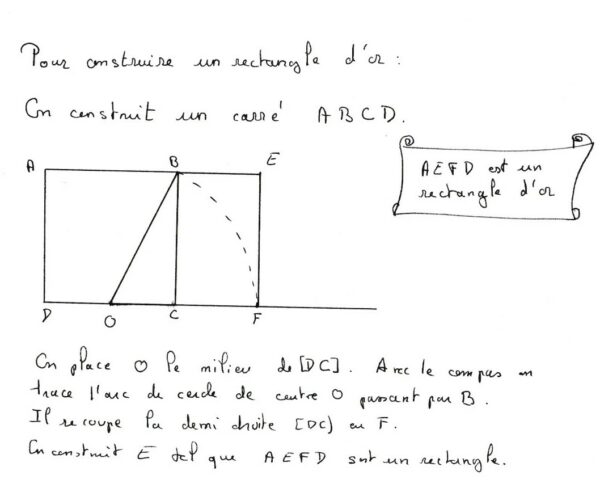 Pour construire un rectangle d'or :
On construit un carré ABCD.
A B E
AEFD est un
rectangle d'or
D O C F
On place O le milieu de [DC]. Avec le compas on
trace l'arc de cercle de centre O passant par B.
Il recoupe la demi droite [DC) en F.
On construit E tel que AEFD soit un rectangle.